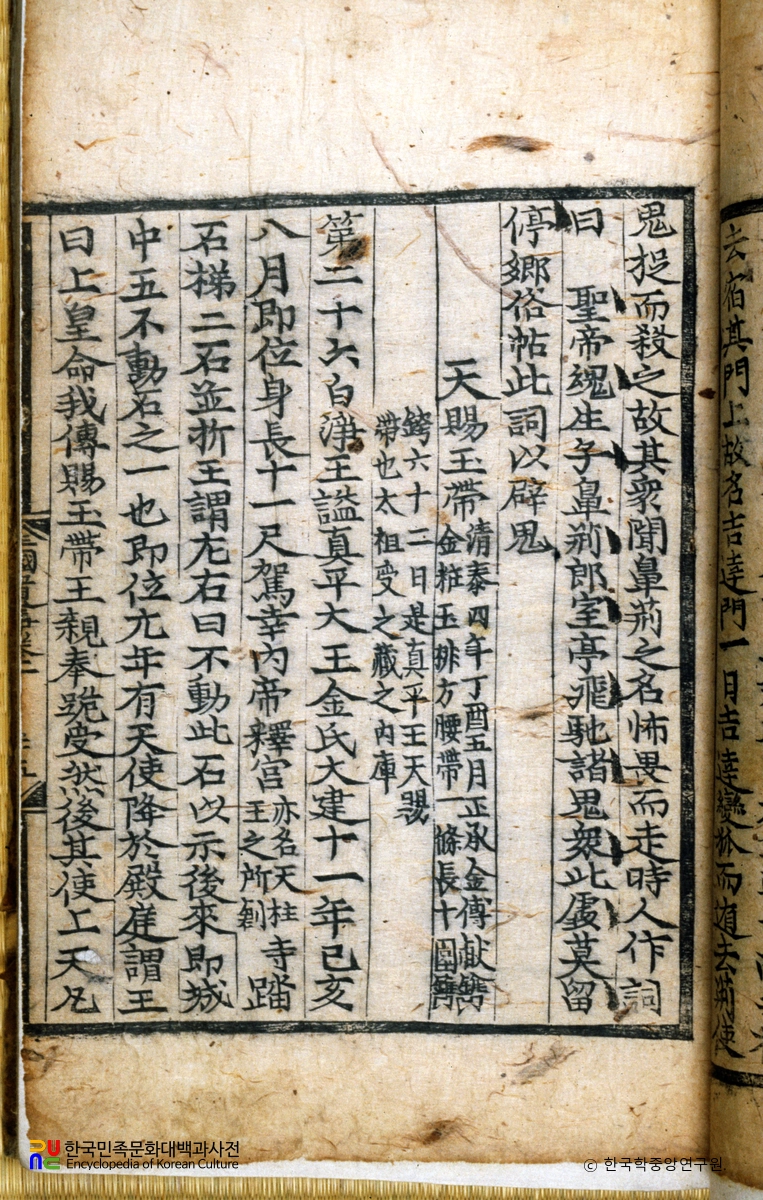 去宿其門上故名吉達門一日吉達變狐而遁去荊使
鬼捉而殺之故其衆聞鼻荊之名怖畏而走時人作詞
曰 聖帝魂生子鼻荊郎室亭飛馳諸鬼衆此處莫留
停鄉俗帖此詞以辟鬼
天賜玉帶
清泰四年丁酉五月正承金傅献鐫
金粧玉排方腰帶一條長十圍鐫
銙六十二日是真平王天賜
帶也太祖受之藏之內庫
第二十六白淨王謚真平大王金氏大建十一年己亥
八月即位身長十一尺駕幸內帝釋宮
亦名天柱
王之所創
寺踏
石梯二石並折王謂左右曰不動此石以示後來即城
中五不動石之一也即位元年有天使降於殿庭謂王
曰上皇命我傳賜玉帶王親奉跪受然後其使上天凡
三國遺事卷
한국민족문화대백과사전
Encyclopedia of Korean Culture
© 한국학중앙연구원